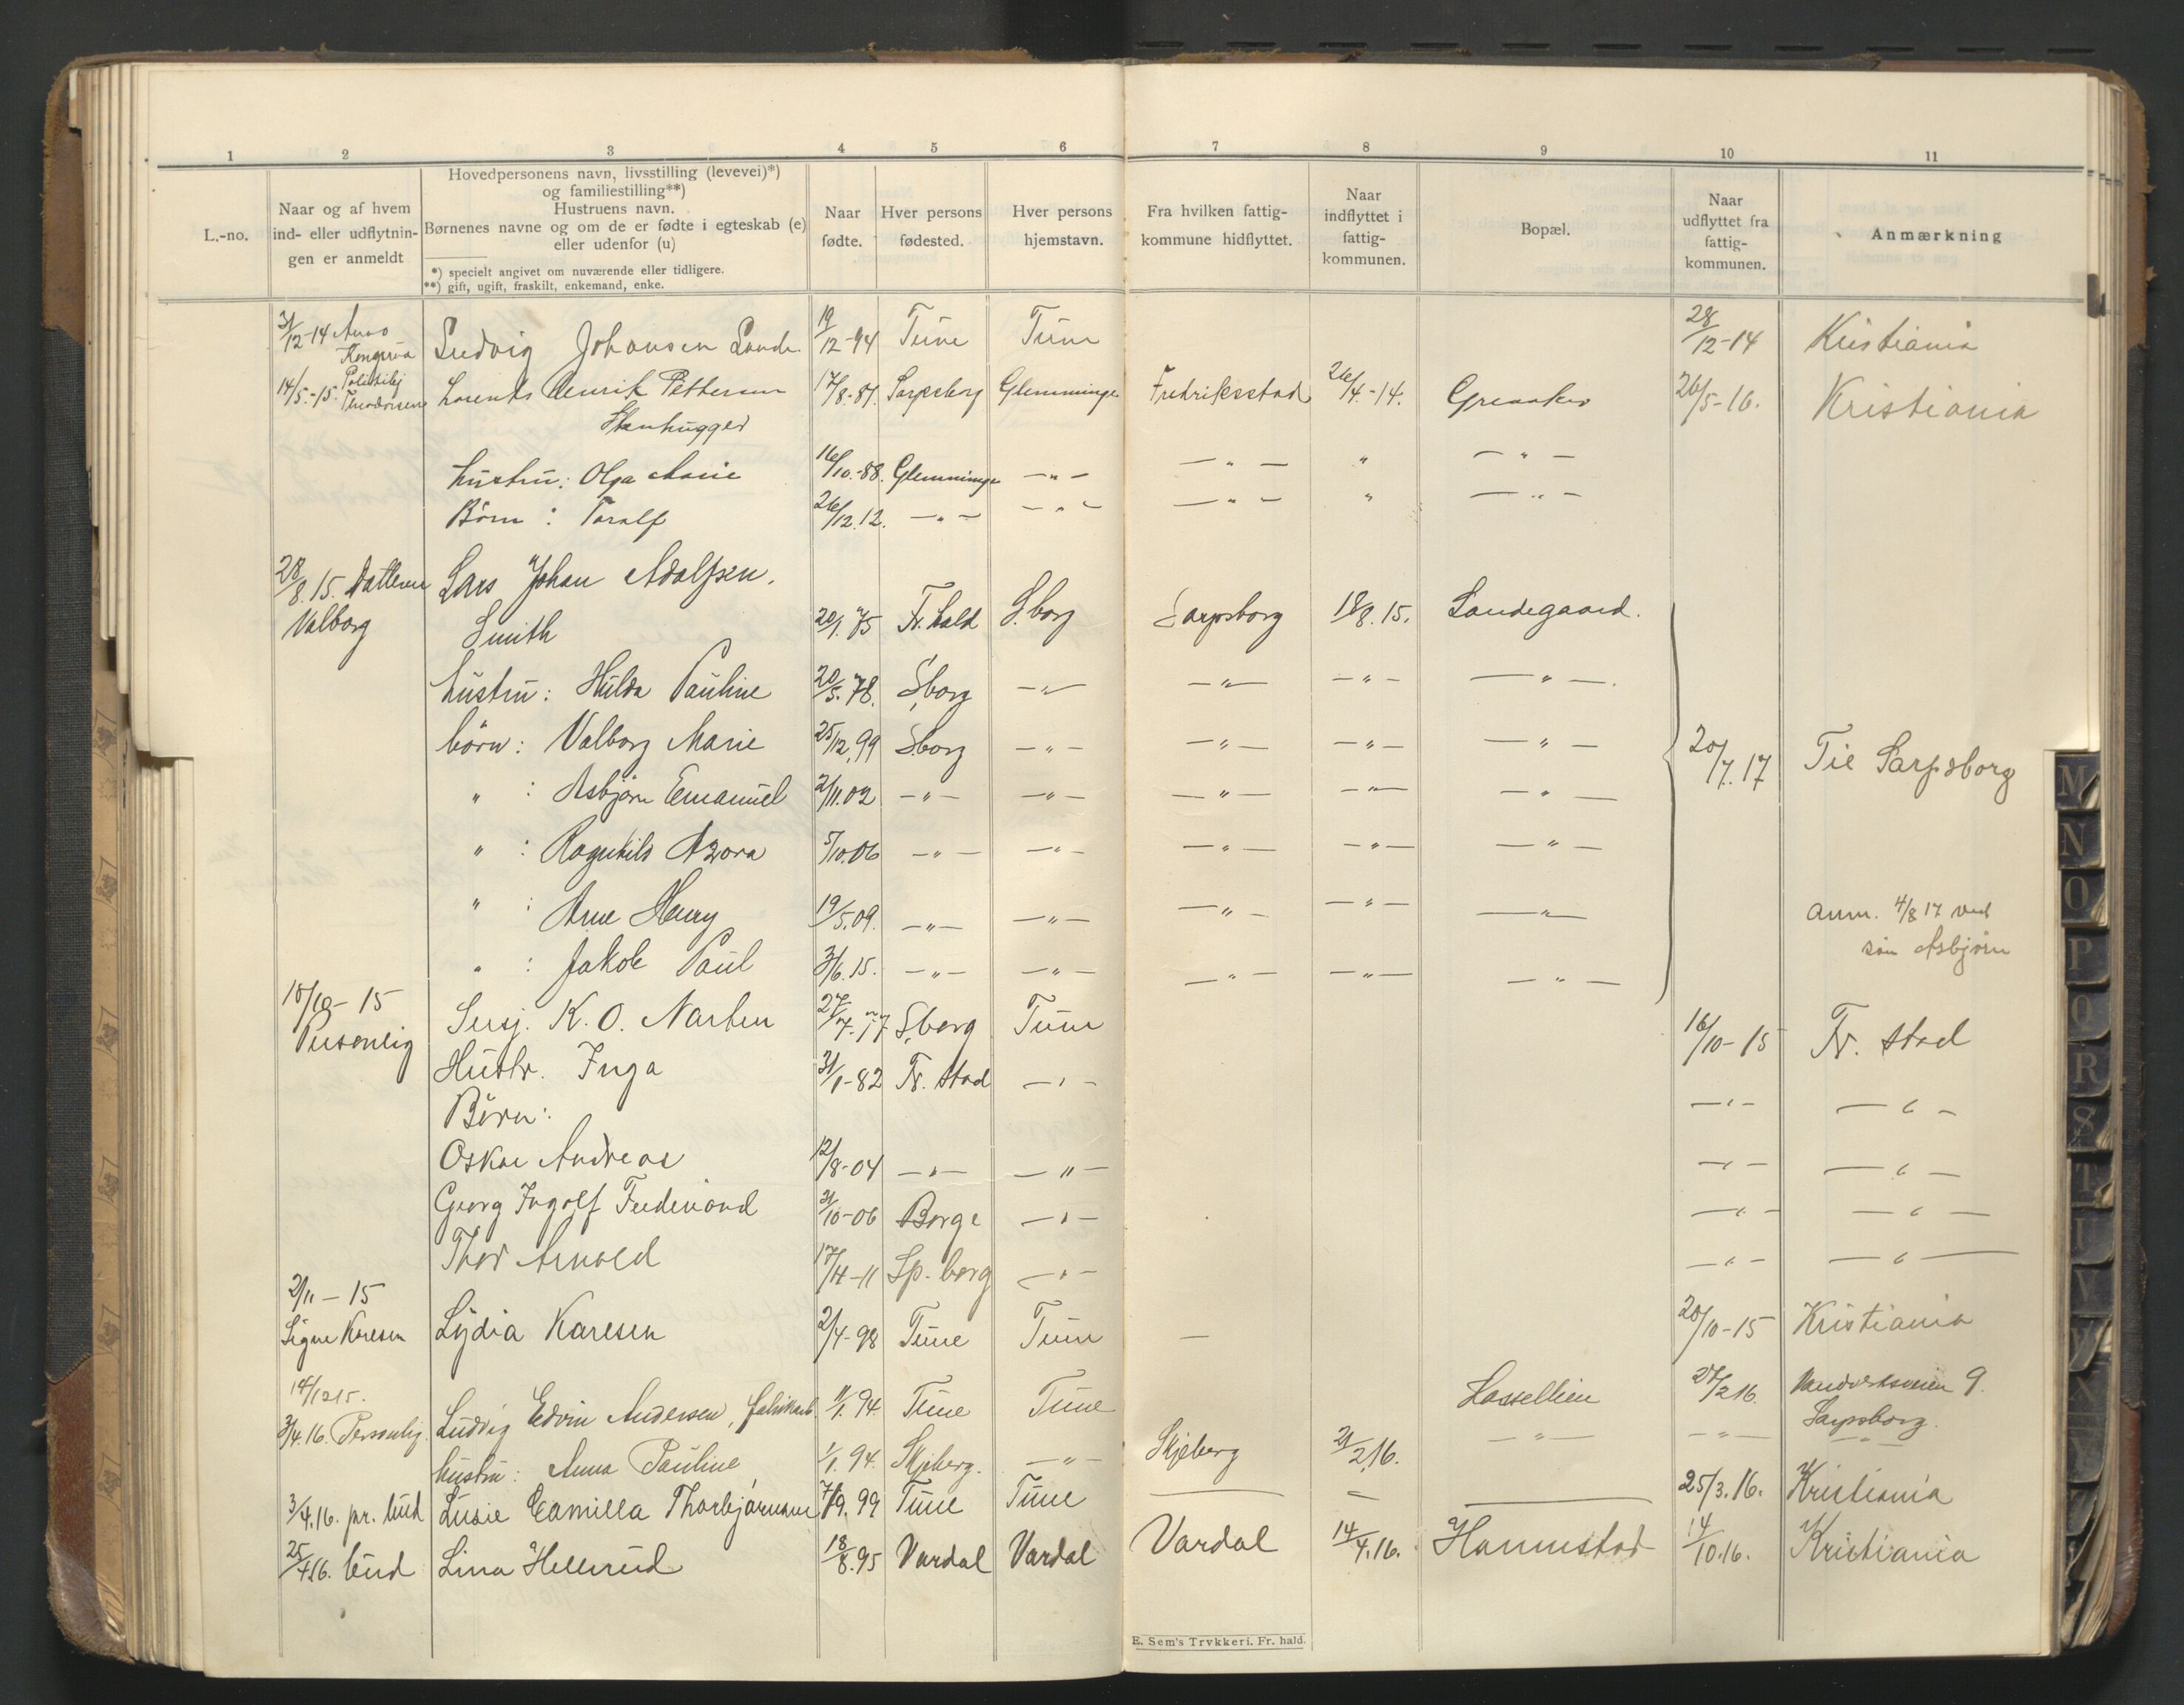 1 2 3 4 5 6 7 8 9 10 11
L.-no.
Naar og af hvem
ind- eller udflytnin-
gen er anmeldt
Hovedpersonens navn, livsstilling (levevei)*)
og familiestilling**)
Hustruens navn.
Børnenes navne og om de er fødte i egteskab (e)
eller udenfor (u)
*) specielt angivet om nuværende eller tidligere.
**) gift, ugift, fraskilt, enkemand, enke.
Naar
fødte.
Hver persons
fødested.
Hver persons
hjemstavn.
Fra hvilken fattig-
kommune hidflyttet.
Naar
indflyttet i
fattig-
kommunen.
Bopæl.
Naar
udflyttet fra
fattig-
kommunen.
Anmærkning
31/12-14 Ludvig Johansen 19/12-94 Tune Tune 28/12-14 Kristiania
14/5-15. Politibtj Theodorsen Lorents Henrik Pettersen 17/8-87. Sarpsborg Glemminge Fredriksstad 26/4.-14. Greaaker 26/5-16. Kristiania
Stenhugger
hustru: Olga Marie 16/10.-88. Glemminge — " — — " — " — " —
Börn: Toralf 26/12.12. — " — — " — — " — " — " —
28/8.15. Datteren Lars Johan Adolfsen.
Valborg Smith 20/1.75 Fr.hald S.borg Sarpsborg 18/8.15. Sandegaard.
hustru: Hulda Pauline 20/5.78. S.borg — " — — " — — " — — " —
börn: Valborg Marie 25/12.99 S.borg — " — — " — — " — — " — 20/7.17 Til Sarpsborg
" : Asbjørn Emanuel 2/11.02 — " — — " — — " — — " — — " —
" : Ragnhild Azora 5/10.06 — " — — " — — " — — " — — " —
" : Arne Henry 19/5.09. — " — — " — — " — — " — — " — anm. 4/8 17 ved
søn Asbjørn
" : Jakob Paul 3/6.15. — " — — " — — " — — " — — " —
18/10-15 Sersj. K. O. Narten 27/7.-77 S.borg Tune 16/10-15 Fr. stad
Personlig
Hustr. Inga 31/1-82 Fr. stad — " — — " — — " —
Børn:
Oskar Andreas 12/8-04 — " — — " — — " — — " —
Georg Ingolf Ferdinand 31/10-06 Borge — " — — " — — " —
Thor Arnold 17/4-11 Sp.borg — " — — " — — " —
2/11-15
Signe Karesen Lydia Karesen 2/4-98 Tune Tune — 20/10-15 Kristiania
14/12 15.
3/4.16. Personlig. Ludvig Edvin Andersen, fabrikarb. 11/1.94. Tune Tune 27/2 16. 9.
Sarpsborg.
hustru: Anna Pauline 1/1.94. Skjeberg. — " — Skjeberg 21/2.16. — " — — " — — " —
3/4.16. pr. bud Lusie Camilla 7/9.99 Tune Tune — — — 25/3.16. Kristiania
25/4.16. bud Lina Hellerud 18/8.95 Vardal Vardal Vardal 14/4.16. Hannestad 14/10.16. Kristiania
E. Sem's Trykkeri. Fr. hald.
M
N
O
P
Q
R
S
T
U
V
X
Y